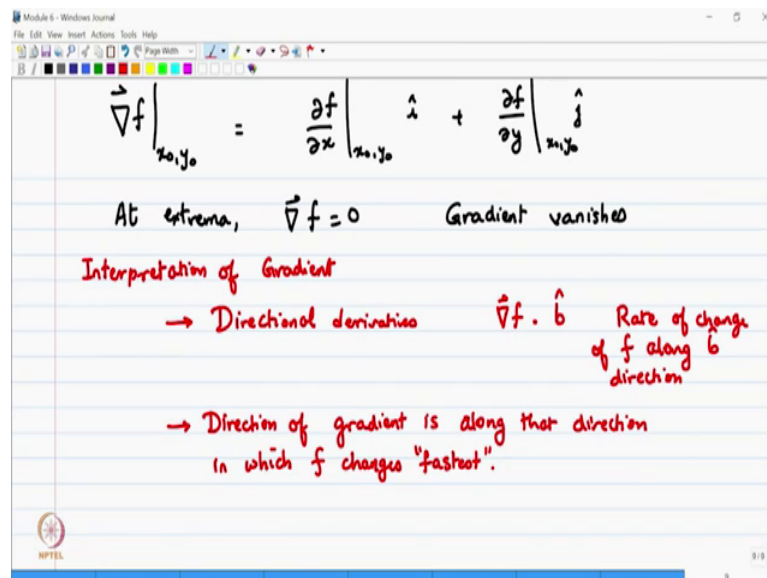 Module 6 - Windows Journal
File Edit View Insert Actions Tools Help
Page Width
B I
∇⃗f|x₀,y₀ = ∂f/∂x|x₀,y₀ î + ∂f/∂y|x₀,y₀ ĵ
At extrema, ∇⃗f = 0 Gradient vanishes
Interpretation of Gradient
→ Directional derivatives ∇⃗f . b̂ Rate of change
of f along b̂
direction
→ Direction of gradient is along that direction
in which f changes "fastest".
NPTEL
9/9